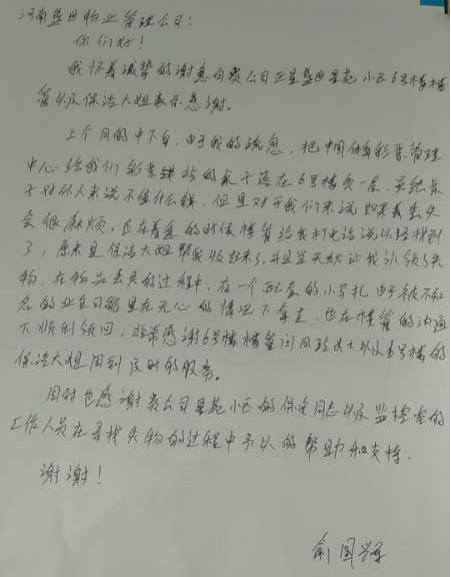 河南盛世物业管理公司:
你们好!
我怀着诚挚的谢意向贵公司正星盛世星苑小区6号楼楼
管以及保洁大姐表示感谢。
上个月的中下旬,由于我的疏忽,把中国体育彩票管理
中心给我们彩票站的桌子落在6号楼负一层,虽然桌
子对外人来说不值什么钱,但是对于我们来说如果丢失
会很麻烦,正在着急的时候楼管给我打电话说以经找到
了,原来是保洁大姐帮我收起来了,并且当天就让我认领了失
物,在物品丢失的过程中,有一个配套的小 由于被不知
名的业主可能是在无心的情况下拿走,也在楼管的沟通
下顺利领回,非常感谢6号楼楼管闫 女士以及6号楼的
保洁大姐周到及时的服务。
同时也感谢贵公司星苑小区的保安同志以及监控室的
工作人员在寻找失物的过程中予以的帮助和支持.
谢谢!
俞国